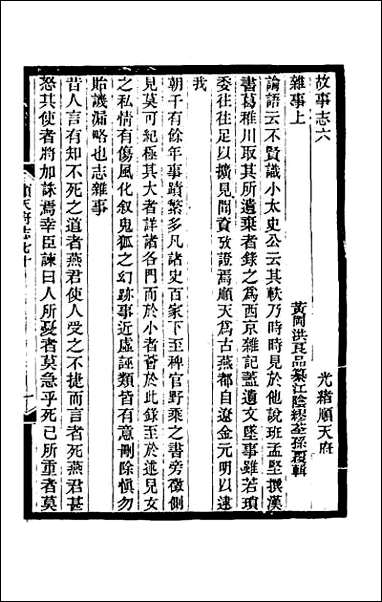 故事志六
光緒順天府
雜事上
黃岡洪良品纂江陰繆荃孫覆輯
論語云不賢識小太史公云其軼乃時時見於他說班孟堅撰漢
書葛稚川取其所遺棄者錄之爲西京雜記蓋遺文墜事雖若瑣
委往往足以擴見聞資攷證焉順天爲古燕都自遼金元明以逮
我
朝千有餘年事蹟繁多凡諸史百家下至稗官野乘之書旁徵側
見莫可紀極其大者詳諸各門而於小者薈於此錄至於述兒女
之私情有傷風化叙鬼狐之幻跡事近虛誣類皆有意刪除愼勿
貽譏漏略也志雜事
昔人言有知不死之道者燕君使人受之不捷而言者死燕君甚
怒其使者將加誅焉幸臣諫曰人所憂者莫急乎死已所重者莫
順天府志七十